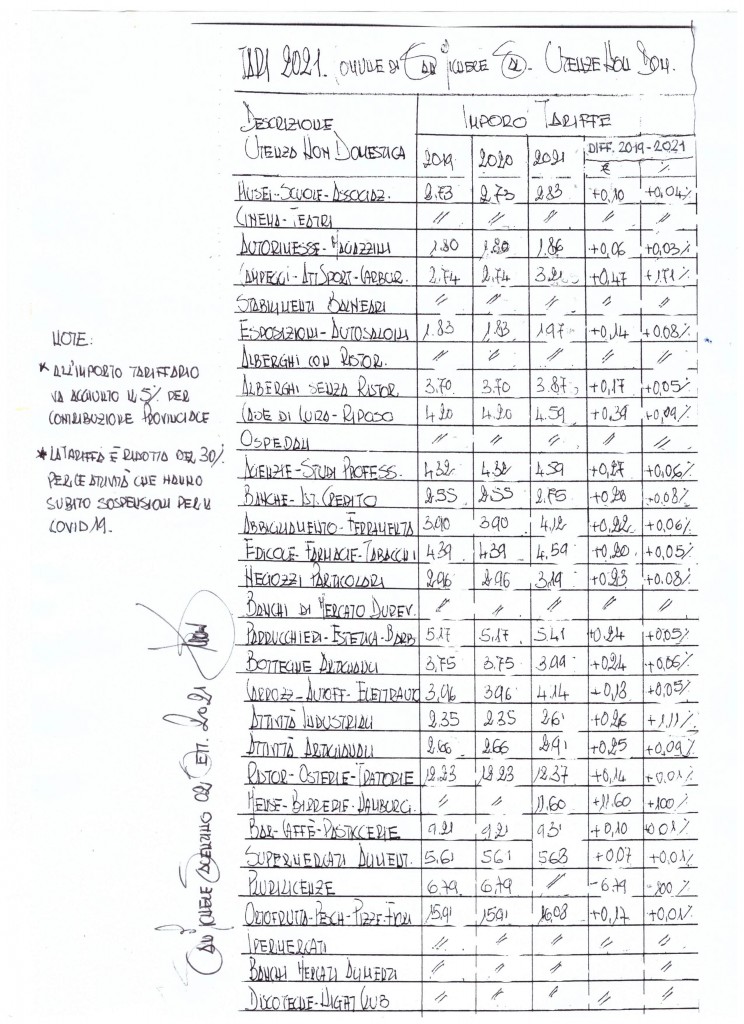 TARI 2021. COMUNE DI SAN MICHELE SAL. UTENZE NON DOM.
DESCRIZIONE UTENZA NON DOMESTICA IMPORO TARIFFE
2019 2020 2021 DIFF. 2019-2021
€ %
MUSEI-SCUOLE-ASSOCIAZ. 2.73 2.73 2.83 +0,10 +0,04%
CINEMA-TEATRI // // // // //
AUTORIMESSE-MAGAZZINI 1.80 1.80 1.86 +0,06 +0,03%
CAMPEGGI-ATT SPORT-CARBUR. 2.74 2.74 3.21 +0,47 +1,71%
STABILIMENTI BALNEARI // // // // //
ESPOSIZIONI-AUTOSALONI 1.83 1.83 1.97 +0,14 +0,08%
ALBERGHI CON RISTOR. // // // // //
ALBERGHI SENZA RISTOR 3.70 3.70 3.87 +0,17 +0,05%
CASE DI CURA-RIPOSO 4.20 4.20 4.59 +0,39 +0,09%
OSPEDALI // // // // //
AGENZIE-STUDI PROFESS. 4.32 4.32 4.59 +0,27 +0,06%
BANCHE-IST. CREDITO 2.55 2.55 2.75 +0,20 +0,08%
ABBIGLIAMENTO-FERRAMENTA 3.90 3.90 4.12 +0,22 +0,06%
EDICOLE-FARMACIE-TABACCHI 4.39 4.39 4.59 +0,20 +0,05%
NEGOZZI PARTICOLARI 2.96 2.96 3.19 +0,23 +0,08%
BANCHI DI MERCATO DUREV. // // // // //
PARRUCCHIERI-ESTETICA-BARB 5.17 5.17 5.41 +0,24 +0,05%
BOTTEGHE ARTIGIANALI 3.75 3.75 3.99 +0,24 +0,06%
CARROZZ-AUTOFF-ELETTRAUTO 3.96 3.96 4.14 +0,18 +0,05%
ATTIVITÀ INDUSTRIALI 2.35 2.35 2.61 +0,26 +1,11%
ATTIVITÀ ARTIGIANALI 2.66 2.66 2.91 +0,25 +0,09%
RISTOR-OSTERIE-TRATTORIE 12.23 12.23 12.37 +0,14 +0,01%
MENSE-BIRRERIE-HAMBURG. // // 11.60 +11.60 +100%
BAR-CAFFÈ-PASTICCERIE 9.21 9.21 9.31 +0,10 +0,01%
SUPERMERCATI ALIMENT. 5.61 5.61 5.68 +0,07 +0,01%
PLURILICENZE 6.79 6.79 // -6.79 -100%
ORTOFRUTTA-PESCH-PIZZE-FIORI 15.91 15.91 16.08 +0,17 +0,01%
IPERMERCATI // // // // //
BANCHI MERCATI ALIMENTARI // // // // //
DISCOTECHE-NIGHT CLUB // // // // //
NOTE:
* ALL'IMPORTO TARIFFARIO
VA AGGIUNTO IL 5% PER
CONTRIBUZIONE PROVINCIALE
* LA TARIFFA È RIDOTTA DEL 30%
PER LE ATTIVITÀ CHE HANNO
SUBITO SOSPENSIONI PER IL
COVID 19.
SAN MICHELE SALENTINO 02 SETT. 2021